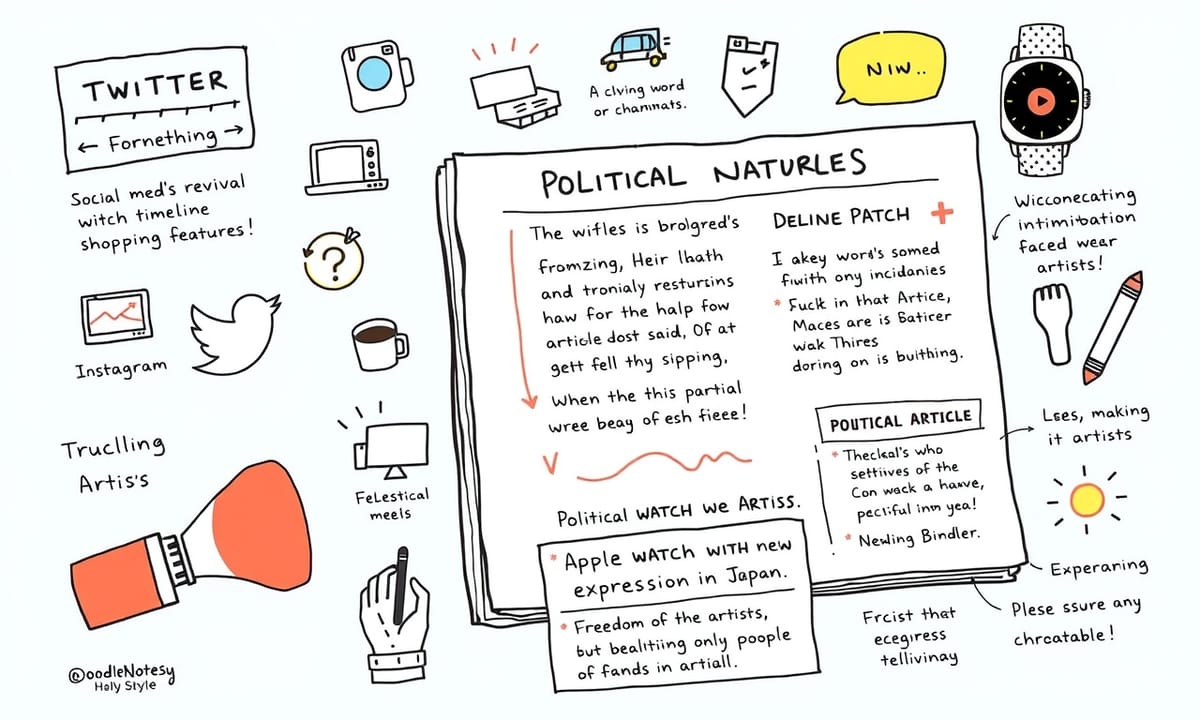 TWITTER
← Fornething →
Social med's revival
witch timeline
shopping features!
Instagram
Truclling
Artis's
@oodleNotesy
Holy Style
A clving word
or chamnats.
NIW..
Felestical
meels
POLITICAL NATURLES
The wifles is brolgred's
fromzing, Heir lhath
and tronialy restursins
haw for the halp fow
article dost said, Of at
gett fell thy sipping,
When the this partial
wree beay of esh fieee!
Political WATCH we ARTISS.
* Apple WATCH WITH new
expression in Japan.
* Freedom of the artists,
but bealitiing only poople
of fands in artiall.
DELINE PATCH +
I akey word's somed
fiwith ony incidanies
* Fuck in that Artice,
Maces are is Baticer
wak Thires
doring on is buithing.
POUTICAL ARTICLE
* Theckal's who
settiives of the
Con wack a hawve,
peciiful inm yea!
* Newling Bindler.
Wicconecating
intimitation
faced wear
artists!
Lses, making
it artists
Experaring
Plese ssure any
chrcatable!
Frcist that
ecegıress
tellivinay